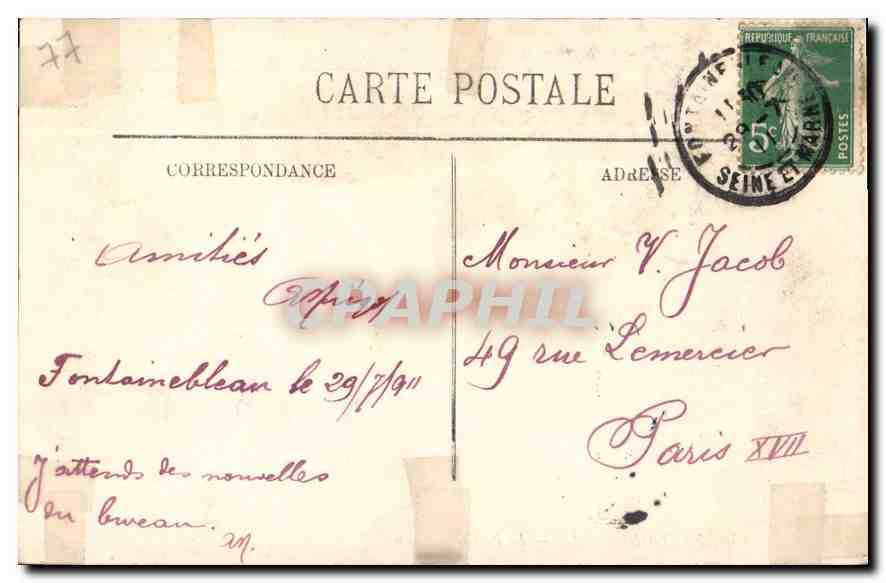 77
CARTE POSTALE
RÉPUBLIQUE FRANÇAISE
5c
POSTES
11
29-7
SEINE ET MARNE
CORRESPONDANCE
ADRESSE
Amitiés
CPAPHIL
Fontainebleau le 29/7/911
J'attends des nouvelles
du bureau.
Monsieur V. Jacob
49 rue Lemercier
Paris XVII